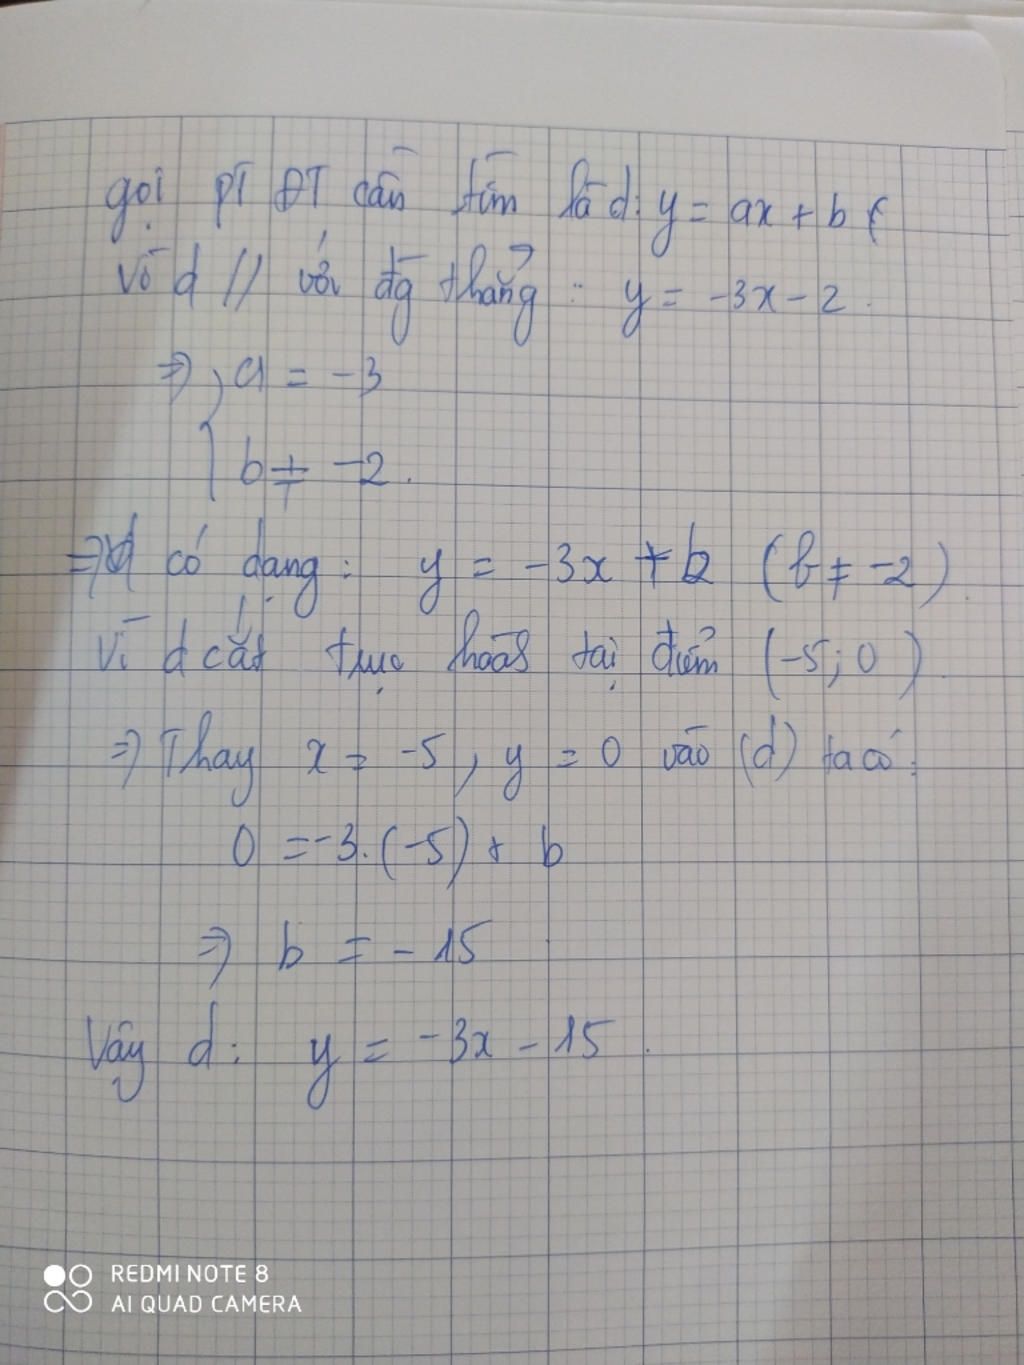 gọi PT ĐT cần tìm là d: y = ax + b (
Vì d // với đg thẳng : y = -3x - 2.
=> { a = -3
b ≠ -2.
=> d có dạng : y = -3x + b (b ≠ -2).
Vì d cắt trục hoàg tại điểm (-5; 0).
=> Thay x = -5, y = 0 vào (d) ta có:
0 = -3.(-5) + b
=> b = -15
Vậy d: y = -3x - 15.
REDMI NOTE 8
AI QUAD CAMERA